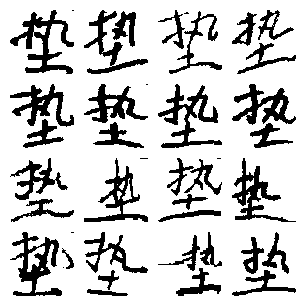 垫垫垫垫
垫垫垫垫
垫垫垫垫
垫垫垫垫